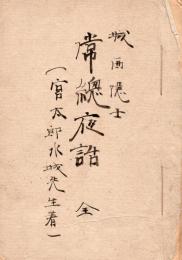 城西隠士
常總夜話 全
(宮本郎水城先生著)